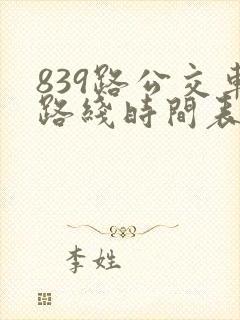 839路公交車
路綫時間表
李姓